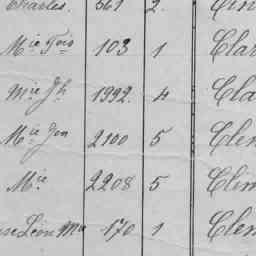 Charles. 561 2.
Mie Fois 103 1 Cla
Mie Jh 1992. 4 Cla
Mie Jon 2100 5 Clem
Mie 2208 5 Clém
Léon Mie 170 1 Clem